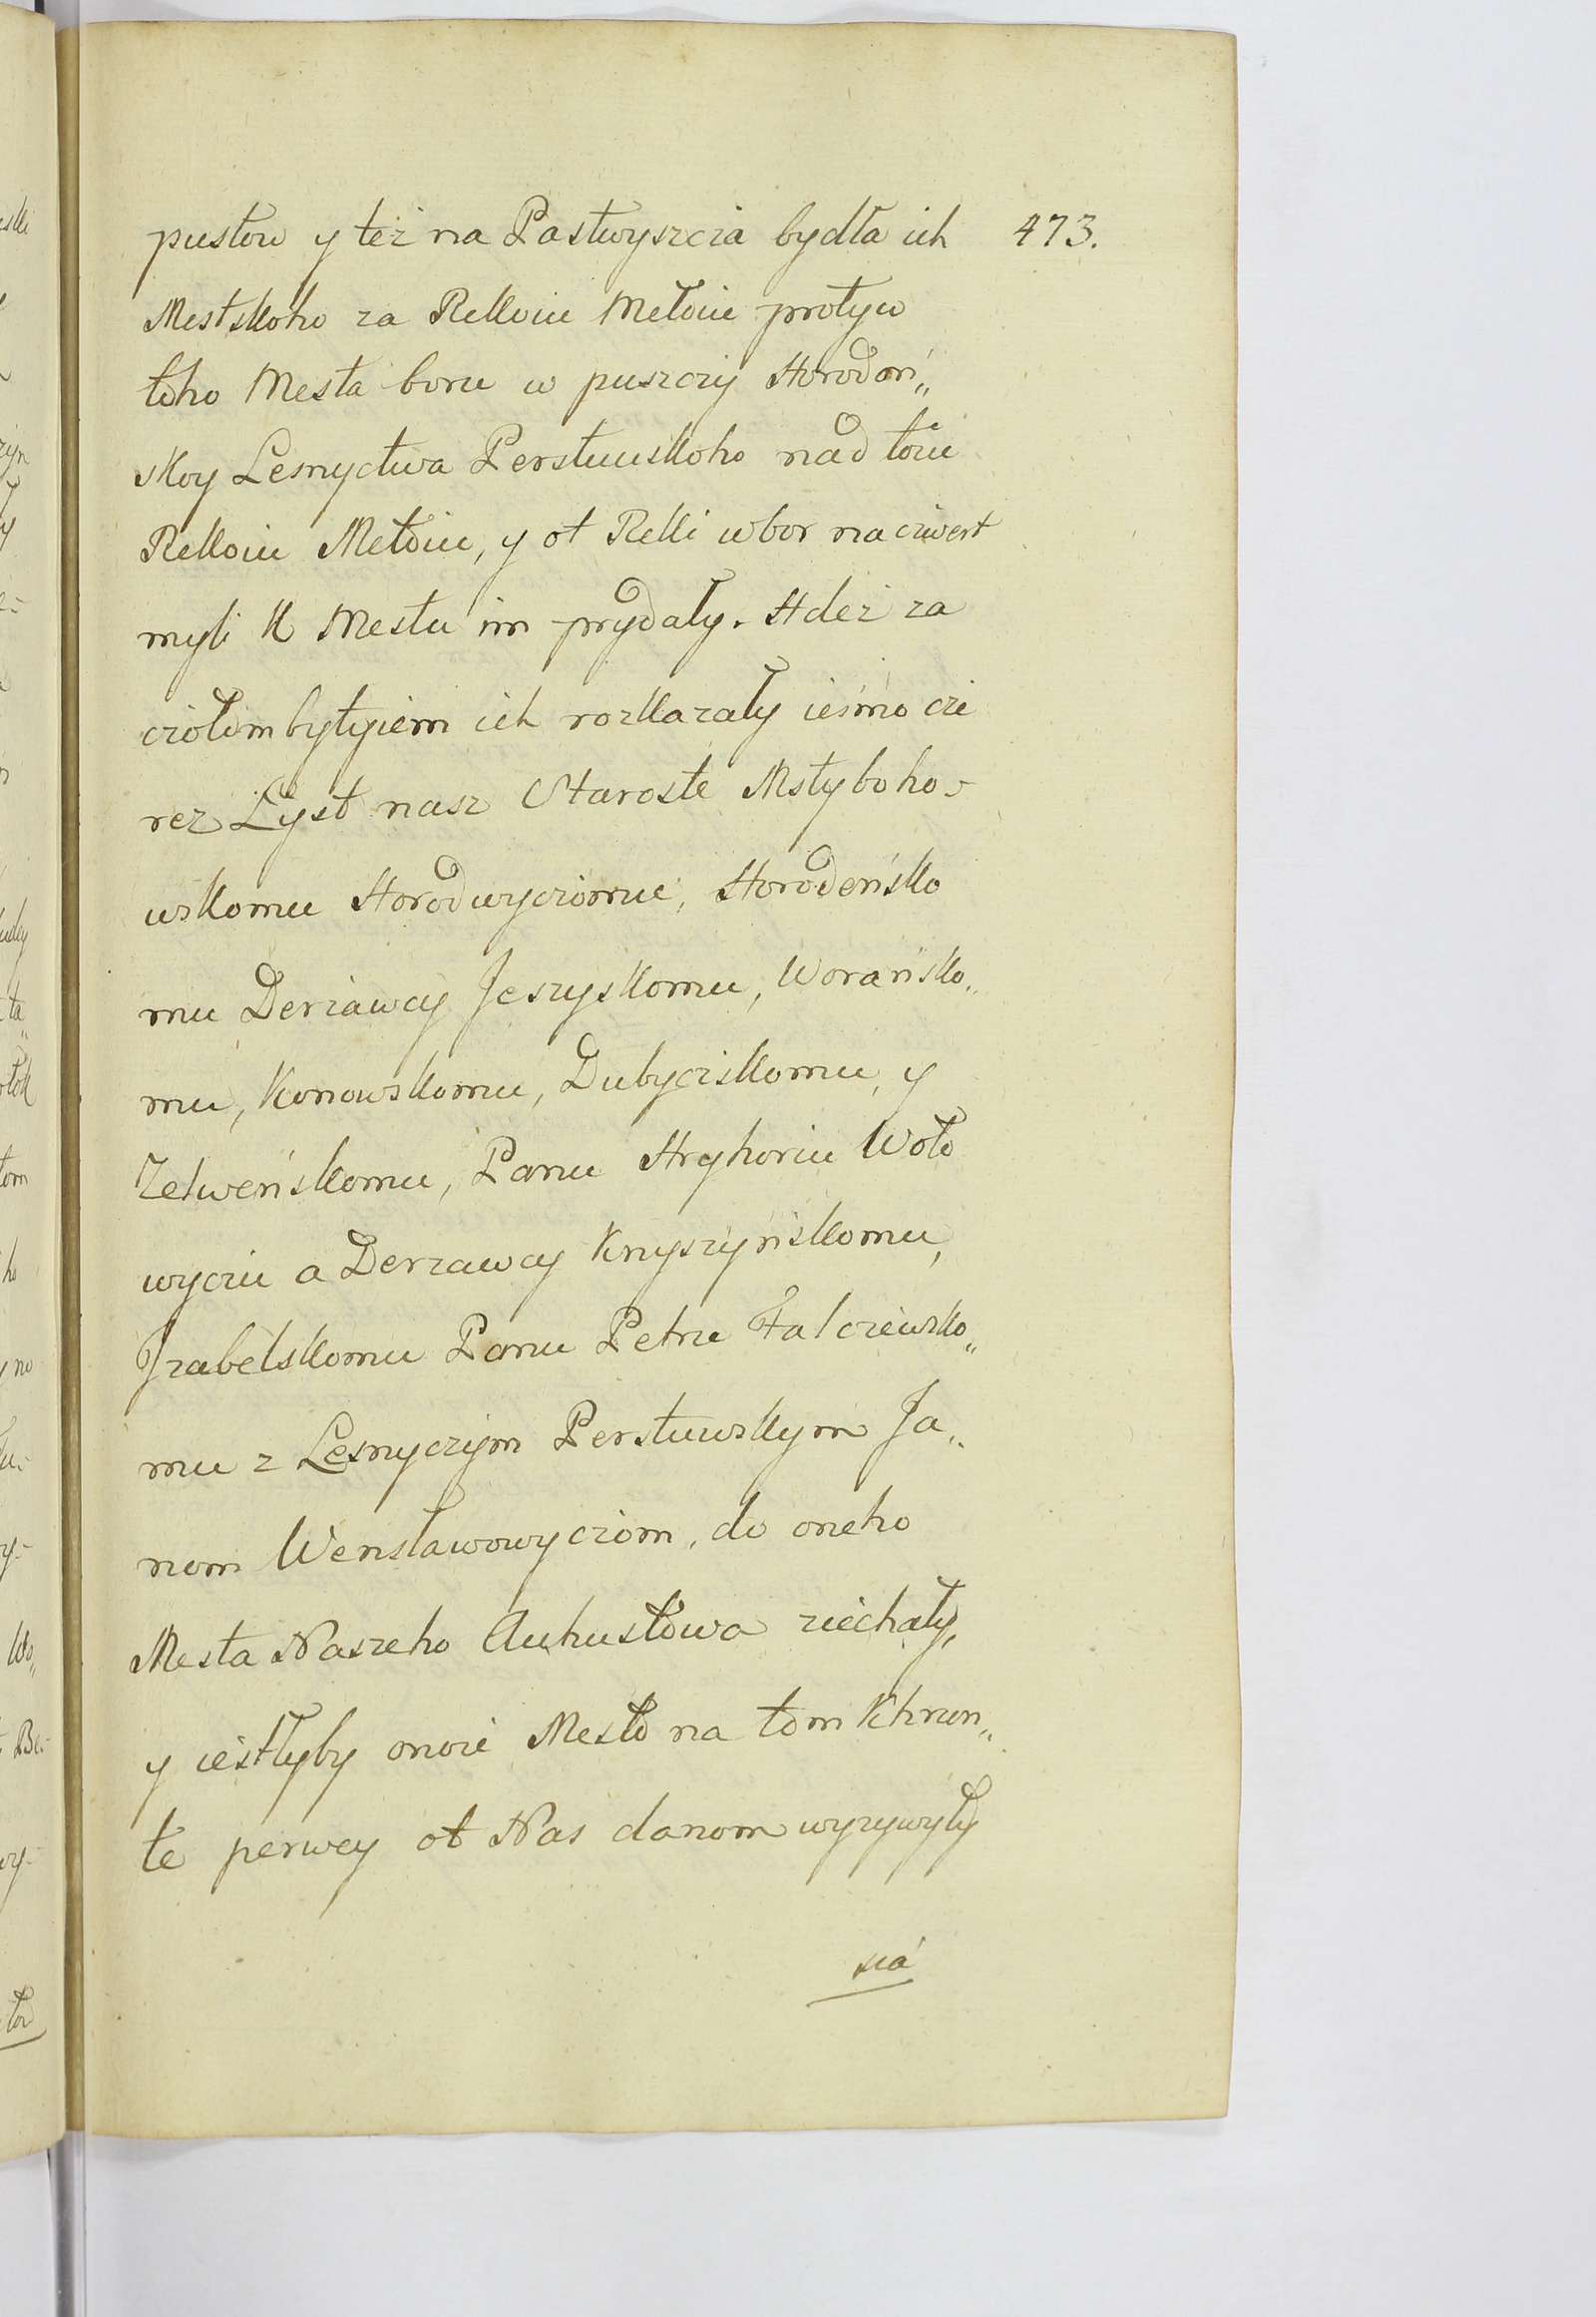 pustow y też na Pastwyszcza bydła ich 473.
Mestskoho za Rekoiu Metoiu protyw
toho Mesta boru w puszczy Horodoń„
skoy Lesnyctwa Perstunskoho nad toiu
Rekoiu Metoiu, y ot Reki w bor na czwert
myli K Mestu im prydaty. Hdeż za
czołom bytyiem ich rozkazaty ieśmo cze
rez Lyst nasz Staroste Mstyboho-
wskomu Horodwyczomu, Horodeńsko
mu Derzawcy Jeszyskomu, Worańsko„
mu, Konowskomu, Dubyczskomu, y
Zelweńskomu, Panu Hryhoriu Woło
wyczu a Derzawcy Knyszyńskomu,
Izabelskomu Panu Petru Falczewsko„
mu z Lesnyczym Perstuwskym Ja„
nom Wensławowyczom, do oneho
Mesta Naszeho Auhustowa ziechaty,
y iestlyby onoie Mesto na tom Khrun„
te perwey ot Nas danom wyzywyty
sia